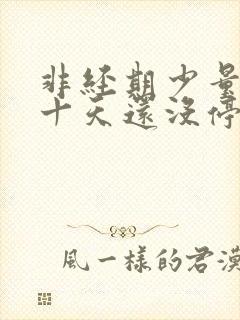 非經期少量
十天還沒停
風一樣的君漠